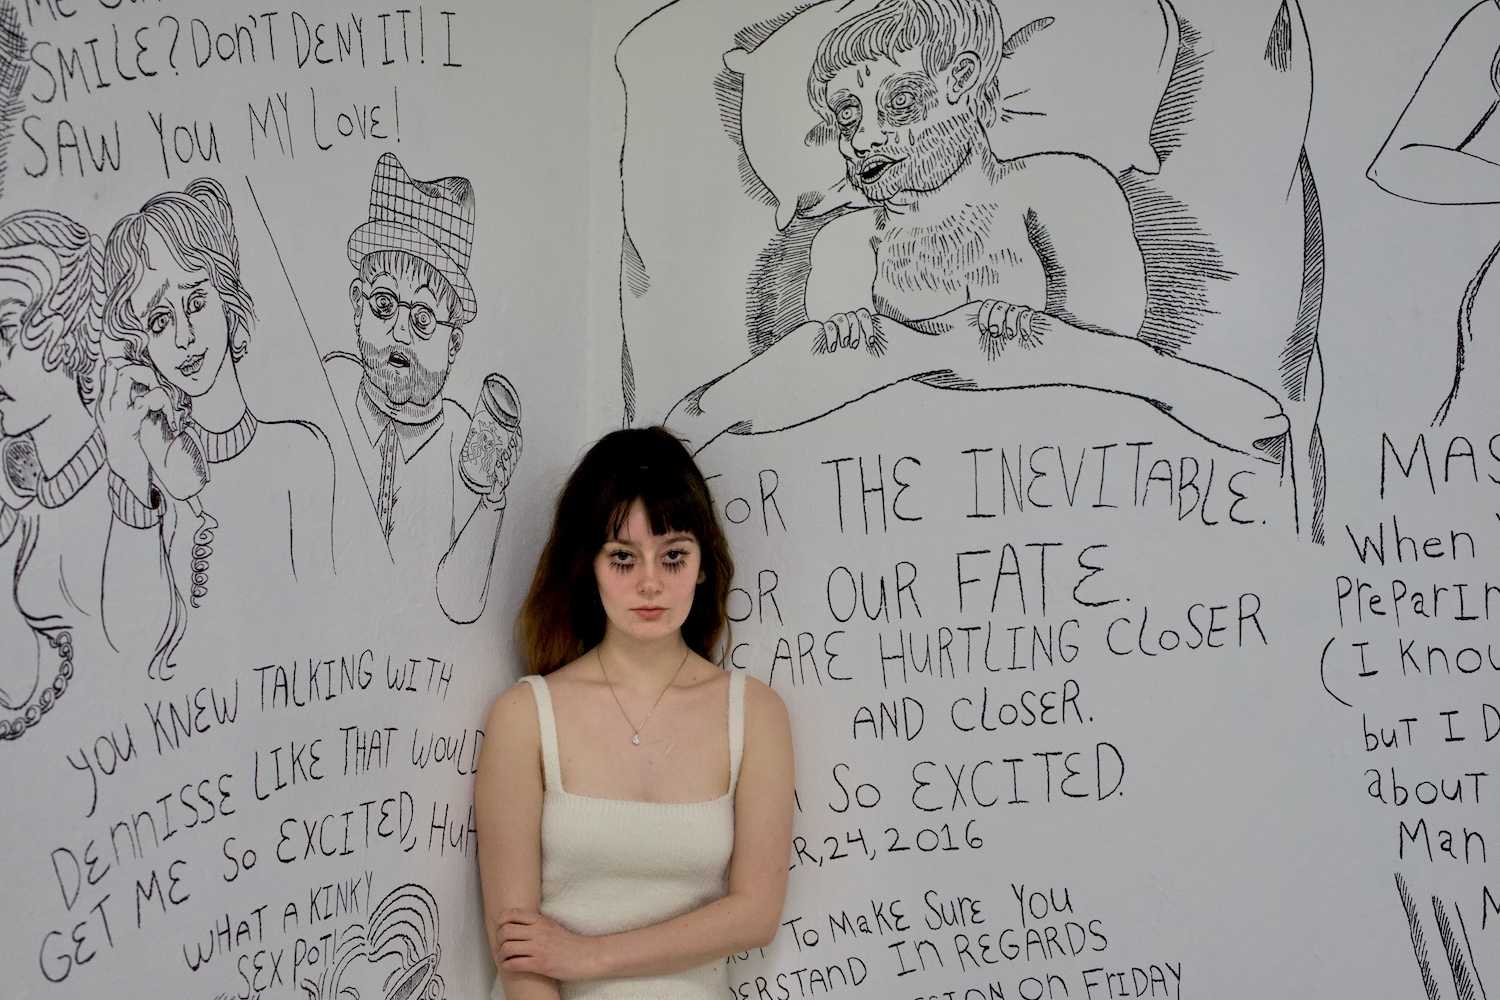 SMILE? DON'T DENY IT! I
SAW YOU MY LOVE!
YOU KNEW TALKING WITH
DENNISSE LIKE THAT WOULD
GET ME SO EXCITED, HUH
WHAT A KINKY
SEX POT!
FOR THE INEVITABLE.
FOR OUR FATE.
ARE HURTLING CLOSER
AND CLOSER.
SO EXCITED.
ER, 24, 2016
TO MAKE SURE YOU
IN REGARDS
ON FRIDAY
MAS
When
PreParIn
(I Know
buT I D
abouT
Man